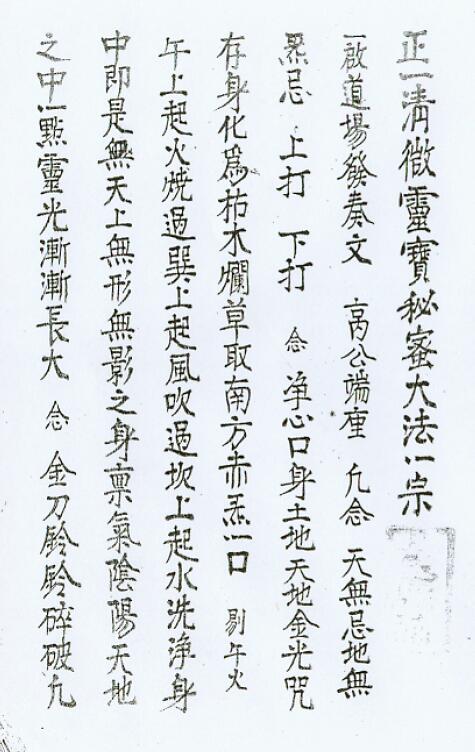 正一清微靈寶秘蜜大法一宗
一啟道場發奏文 高公端座 凢念 天無忌地無
炁忌 上打 下打 念 净心口身土地天地金光咒
存身化爲枯木爛草取南方赤炁一口 剔午火
午上起火燒過巽上起風吹過坎上起水洗浄身
中即是無天上無形無影之身禀氣陰陽天地
之中一點靈光漸漸長大 念 金刀鈴鈴碎破凢